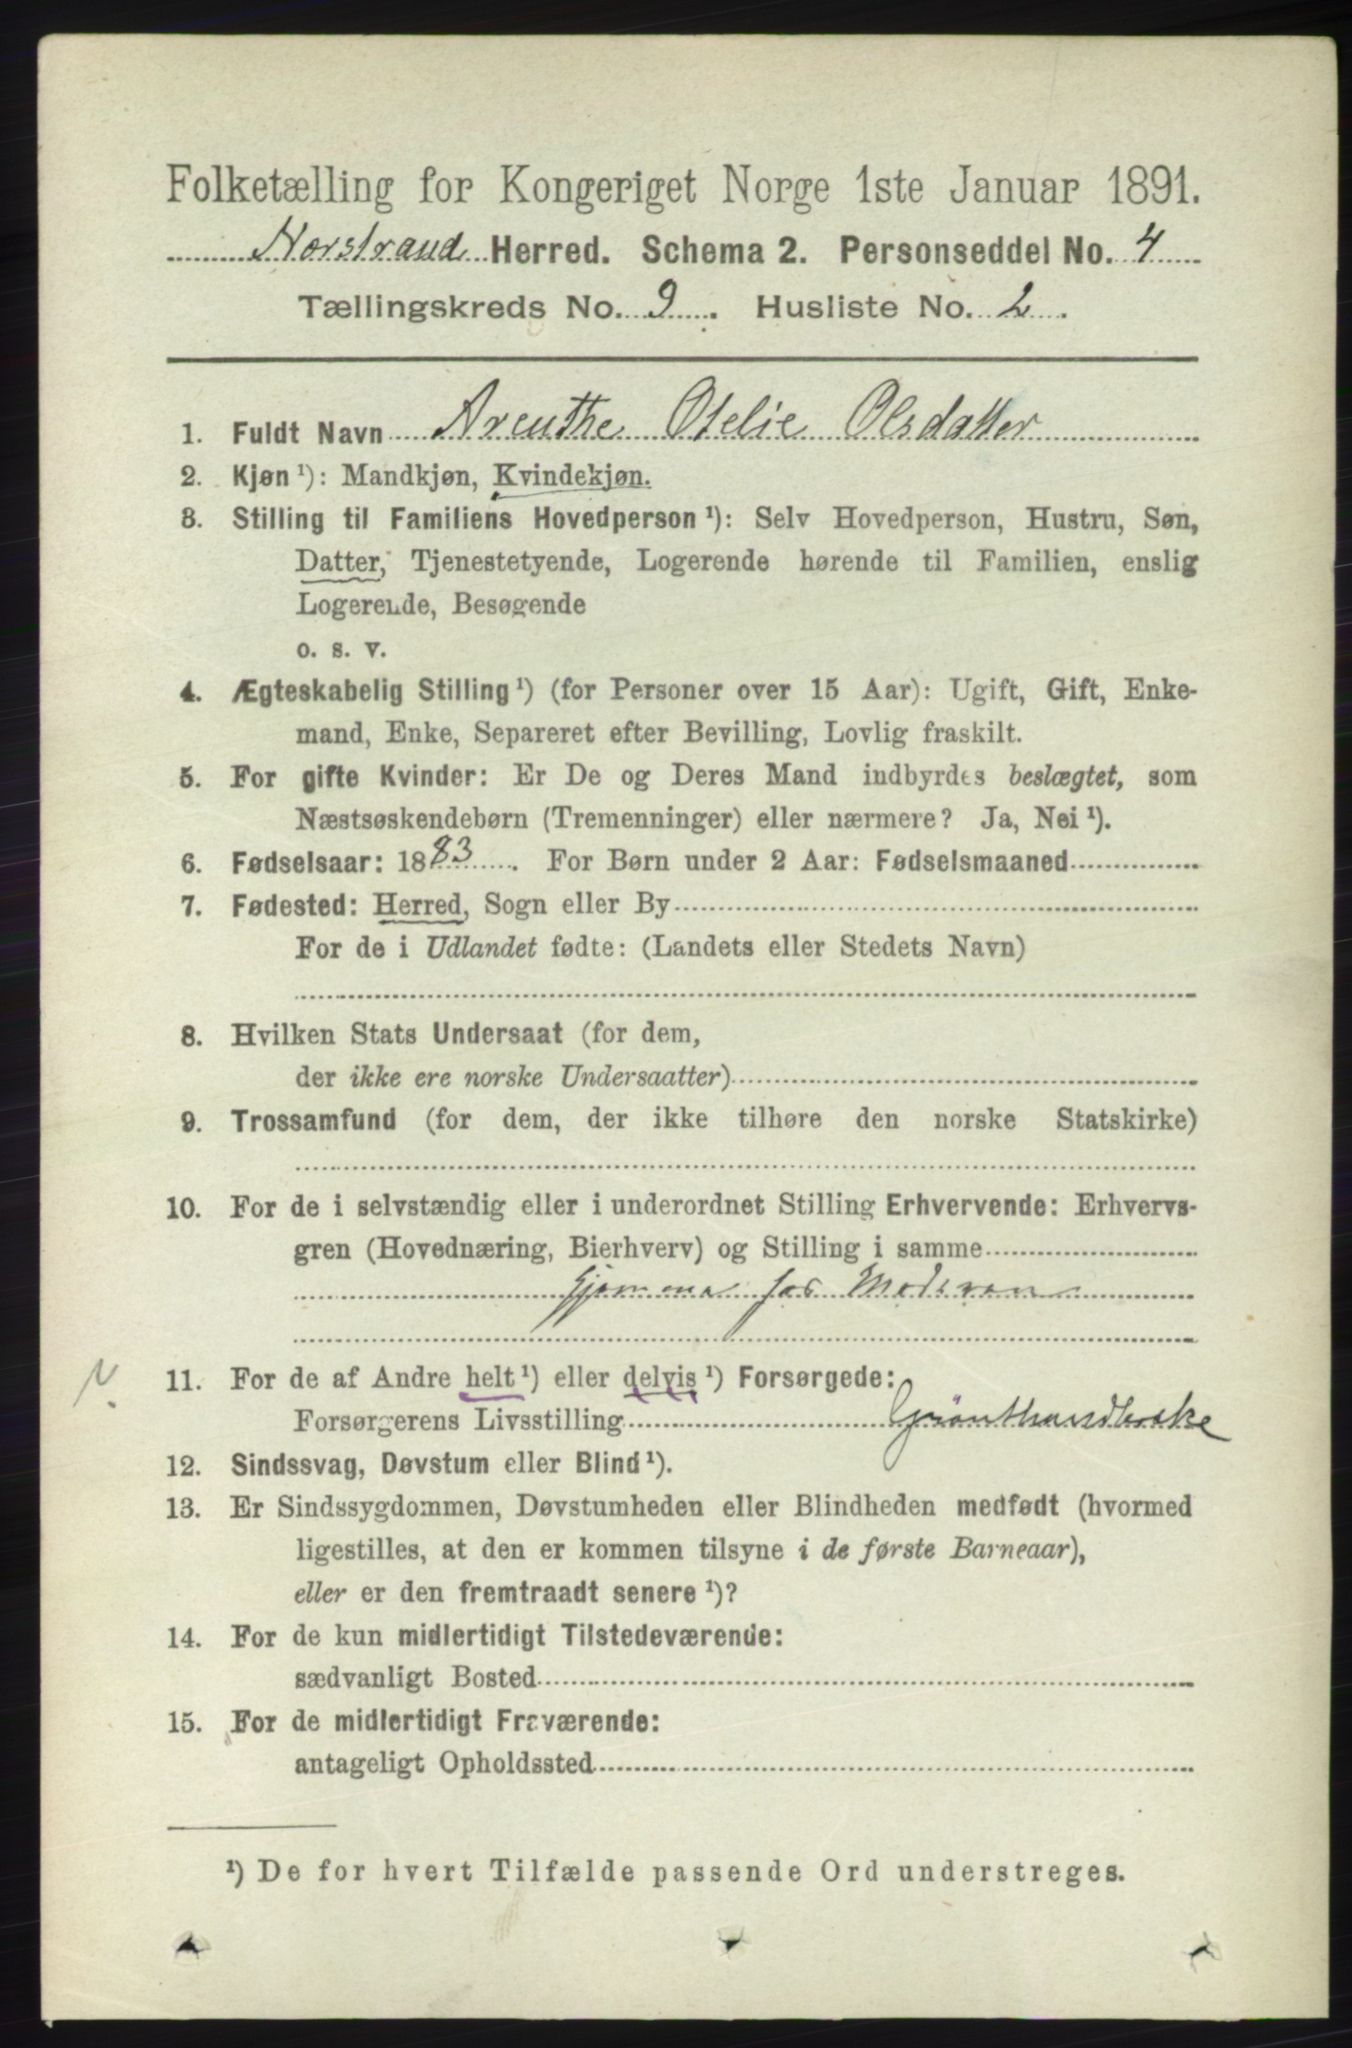 Folketælling for Kongeriget Norge 1ste Januar 1891.
Norstrand Herred. Schema 2. Personseddel No. 4
Tællingskreds No. 9. Husliste No. 2.
1. Fuldt Navn Arenthe Otelie Olsdatter
2. Kjøn ¹): Mandkjøn, Kvindekjøn.
3. Stilling til Familiens Hovedperson ¹): Selv Hovedperson, Hustru, Søn,
Datter, Tjenestetyende, Logerende hørende til Familien, enslig
Logerende, Besøgende
o. s. v.
4. Ægteskabelig Stilling ¹) (for Personer over 15 Aar): Ugift, Gift, Enke-
mand, Enke, Separeret efter Bevilling, Lovlig fraskilt.
5. For gifte Kvinder: Er De og Deres Mand indbyrdes beslægtet, som
Næstsøskendebørn (Tremenninger) eller nærmere? Ja, Nei ¹).
6. Fødselsaar: 1883. For Børn under 2 Aar: Fødselsmaaned
7. Fødested: Herred, Sogn eller By
For de i Udlandet fødte: (Landets eller Stedets Navn)
8. Hvilken Stats Undersaat (for dem,
der ikke ere norske Undersaatter)
9. Trossamfund (for dem, der ikke tilhøre den norske Statskirke)
10. For de i selvstændig eller i underordnet Stilling Erhvervende: Erhvervs-
gren (Hovednæring, Bierhverv) og Stilling i samme
Hjemme hos
11. For de af Andre helt ¹) eller delvis ¹) Forsørgede:
Forsørgerens Livsstilling
12. Sindssvag, Døvstum eller Blind ¹).
13. Er Sindssygdommen, Døvstumheden eller Blindheden medfødt (hvormed
ligestilles, at den er kommen tilsyne i de første Barneaar),
eller er den fremtraadt senere ¹)?
14. For de kun midlertidigt Tilstedeværende:
sædvanligt Bosted
15. For de midlertidigt Fraværende:
antageligt Opholdssted
¹) De for hvert Tilfælde passende Ord understreges.